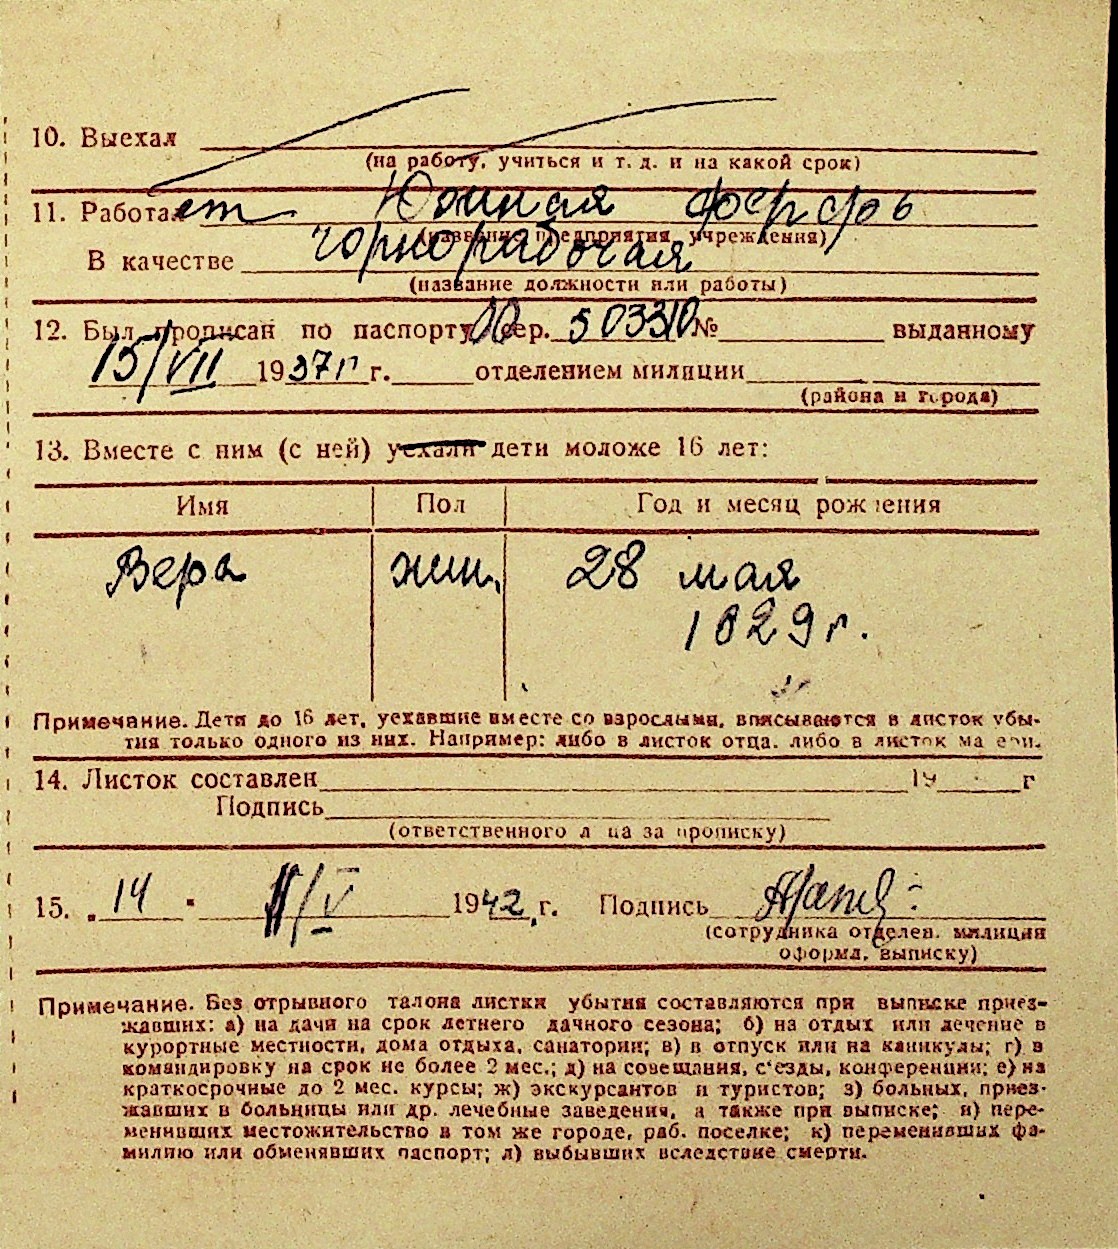 10. Выехал
(на работу, учиться и т. д. и на какой срок)
11. Работает Южная
(название предприятия, учреждения)
В качестве чернорабочая
(название должности или работы)
12. Был прописан по паспорту сер. 503310 № выданному
15/VII 1937 г. г. отделением милиции
(района и города)
13. Вместе с ним (с ней) уехали дети моложе 16 лет:
Имя Пол Год и месяц рождения
Вера жен. 28 мая
1929 г.
Примечание. Дети до 16 лет, уехавшие вместе со взрослыми, вписываются в листок убы-
тия только одного из них. Например: либо в листок отца, либо в листок матери.
14. Листок составлен 19 г
Подпись
(ответственного лица за прописку)
15. „14" V 1942 г. Подпись
(сотрудника отделен. милиции
оформл. выписку)
Примечание. Без отрывного талона листки убытия составляются при выписке приез-
жавших: а) на дачи на срок летнего дачного сезона; б) на отдых или лечение в
курортные местности, дома отдыха, санатории; в) в отпуск или на каникулы; г) в
командировку на срок не более 2 мес.; д) на совещания, с'езды, конференции; е) на
краткосрочные до 2 мес. курсы; ж) экскурсантов и туристов; з) больных, приез-
жавших в больницы или др. лечебные заведения, а также при выписке; и) пере-
менивших местожительство в том же городе, раб. поселке; к) переменивших фа-
милию или обменявших паспорт; л) выбывших вследствие смерти.